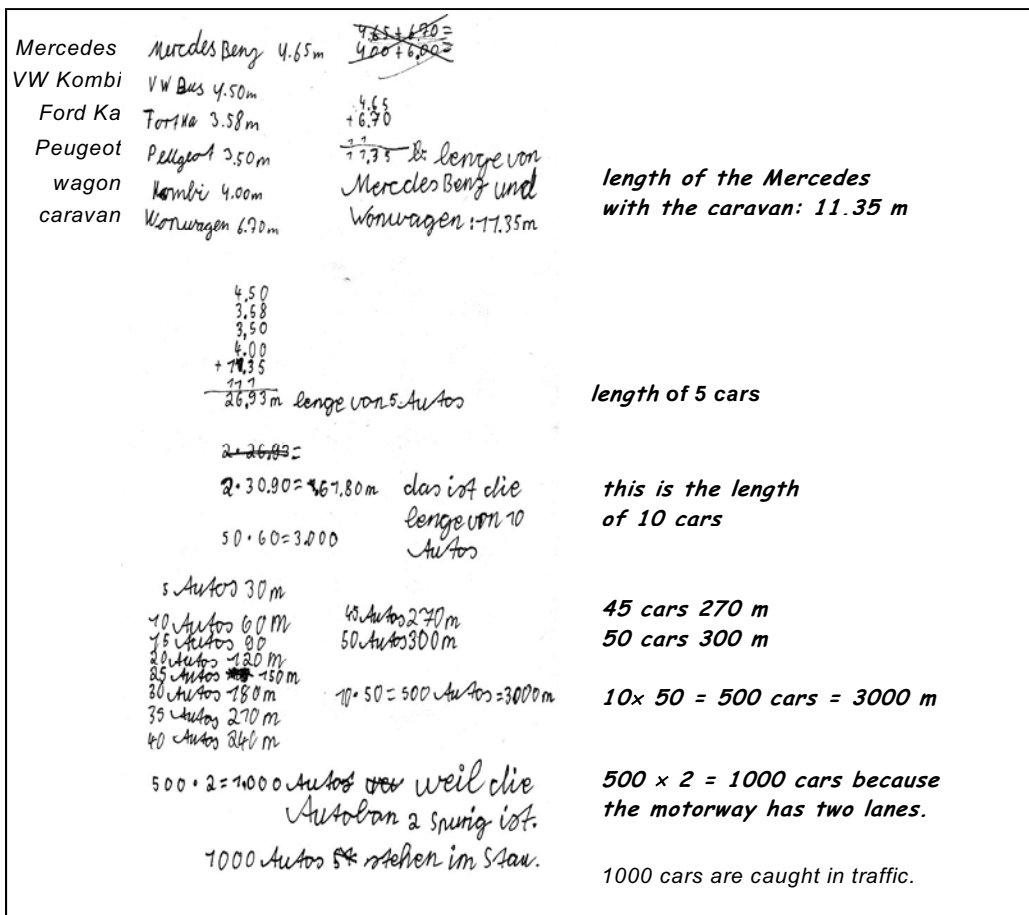 Mercedes
VW Kombi
Ford Ka
Peugeot
wagon
caravan
Mercdes Benz 4.65m
VW Bus 4.50m
Fort Ka 3.58m
Peugeot 3.50m
Kombi 4.00m
Wonwagen 6.70m
4.65+6.70=
4.00+6.00=
4.65
+6.70
11
11.35 lenge von
Mercdes Benz und
Wonwagen: 11.35m
length of the Mercedes
with the caravan: 11.35 m
4.50
3.58
3,50
4.00
+ 11.35
111
26,93m lenge von 5 Autos
length of 5 cars
2·26.93=
2·30.90=61.80m das ist die
lenge von 10
Autos
this is the length
of 10 cars
50·60=3.000
5 Autos 30m
10 Autos 60m
15 Autos 90
20 Autos 120m
25 Autos 150m
30 Autos 180m
35 Autos 210m
40 Autos 240m
45 Autos 270m
50 Autos 300m
10·50=500 Autos=3000m
45 cars 270 m
50 cars 300 m
10× 50 = 500 cars = 3000 m
500·2=1.000 Autos weil die
Autoban 2 spurig ist.
1000 Autos stehen im Stau.
500 × 2 = 1000 cars because
the motorway has two lanes.
1000 cars are caught in traffic.